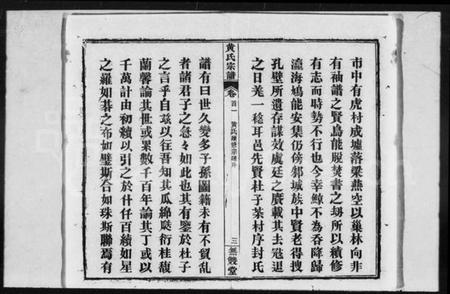 市中有虎村成墟落梁燕空以巢林向非
有袖譜之賢烏能脫焚書之刼所以續修
有志而時勢不行也今幸鯨不為吞降歸
瀛海鴻能安集仍傍鄉城族中賢老得搜
孔壁所遺存謀效處廷之賡載其去寇退
之日美一稔耳邑先賢杜子茶村序封氏
黃氏宗譜
卷首一
三
無雙堂
譜有曰世久變多子孫圖籍未有不貿亂
者諸君子之急々如此也其有鑒於杜子
之言乎自茲以往吾知其瓜綿瓞衍桂馥
蘭馨論其世或累數千百年論其丁或以
千萬計由初續以引之於什仟百續如星
之羅如棊之布如璧斯合如珠斯聯焉有